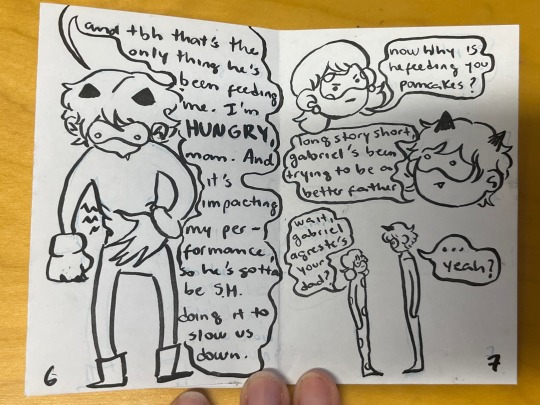 and tbh that's the
only thing he's
been feeding
me. I'm
HUNGRY,
man. And
it's
impacting
my per-
formance,
so he's gotta
be S.H.
doing it to
slow us
down.
6
now why is
he feeding you
pancakes?
long story short,
gabriel's been
trying to be a
better father
wait,
gabriel
agreste's
your
dad?
...
yeah?
7